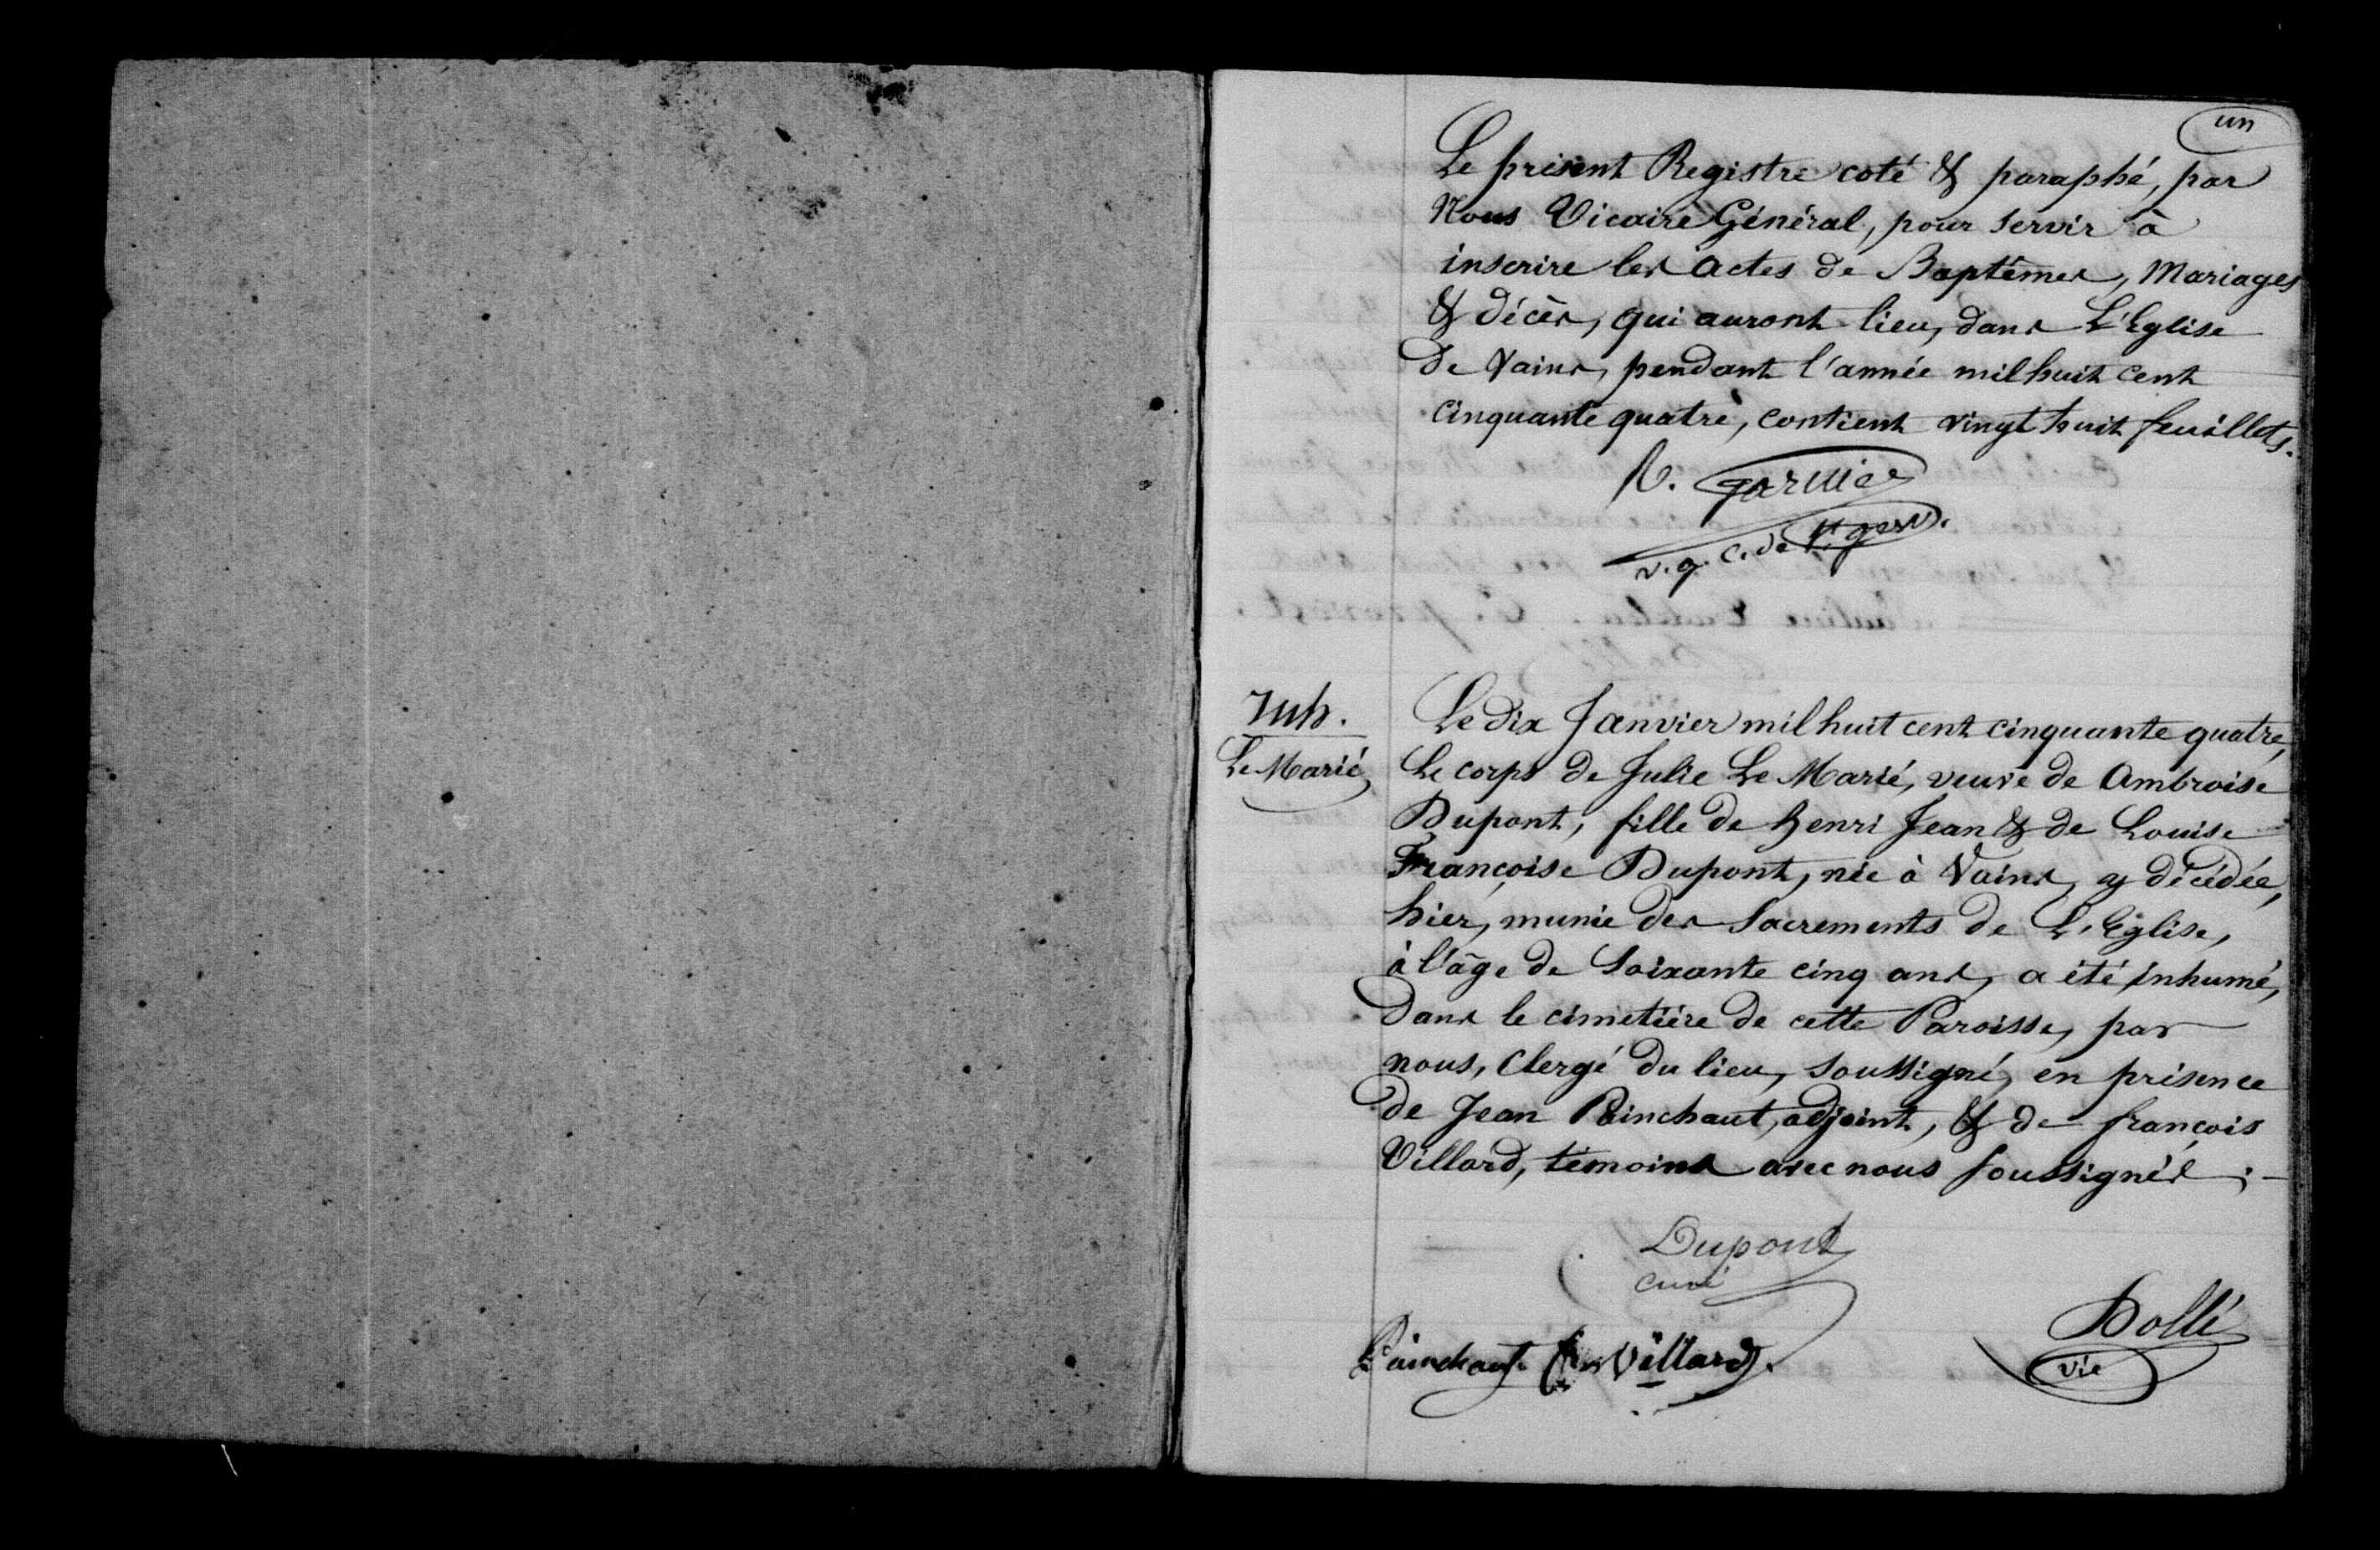 un
Le présent Registre coté & paraphé, par
Nous Vicaire Général, pour servir à
inscrire les actes de Baptêmes, Mariages
& décès, qui auront lieu, dans L'Eglise
de Vains, pendant l'année mil huit cent
cinquante quatre, contient vingt huit feuillets.
garnier
v. g. C. de
Inh.
Le Marié
Le dix Janvier mil huit cent cinquante quatre,
Le corps de Julie Le Marié, veuve de Ambroise
Dupont, fille de henri Jean & de Louise
Françoise Dupont, née à Vains, y décédée,
hier, munie des Sacrements de L'Eglise,
à l'âge de Soixante cinq ans, a été inhumé,
dans le cimetière de cette Paroisse, par
nous, Clergé du lieu, soussigné, en présence
de Jean Painchaut, adjoint, & de françois
Villard, témoins avec nous soussignés ;-
Dupont
curé
Painchaut Villard.
Dollé
vic